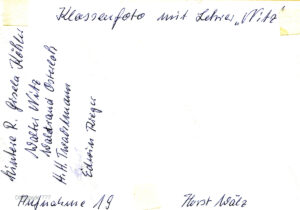 Klassenfoto mit Lehrer „Witz“
Kirsten R. Gisela Köhler
Walter Witz
Waltraud Osterloh
H. H. Twachtmann
Edwin Rieger
Aufnahme 19
Horst Wätz